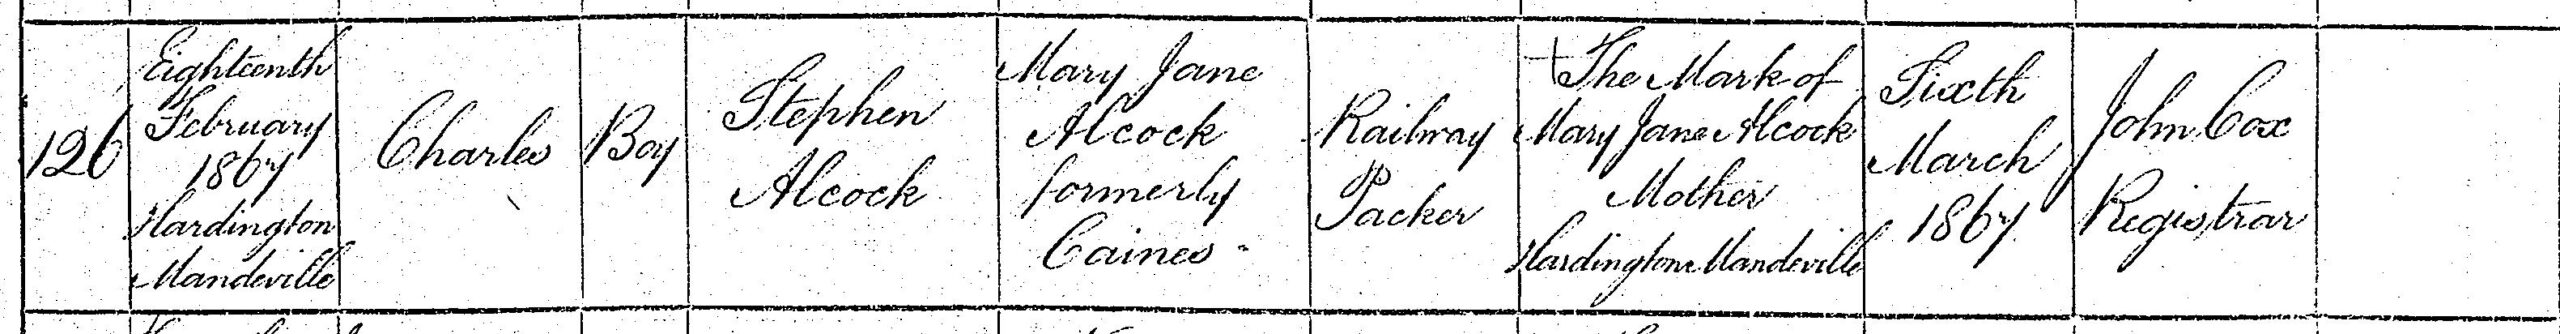 126
Eighteenth
February
1867
Hardington
Mandeville
Charles
Boy
Stephen
Alcock
Mary Jane
Alcock
formerly
Caines
Railway
Packer
The Mark of
Mary Jane Alcock
Mother
Hardington Mandeville
Sixth
March
1867
John Cox
Registrar